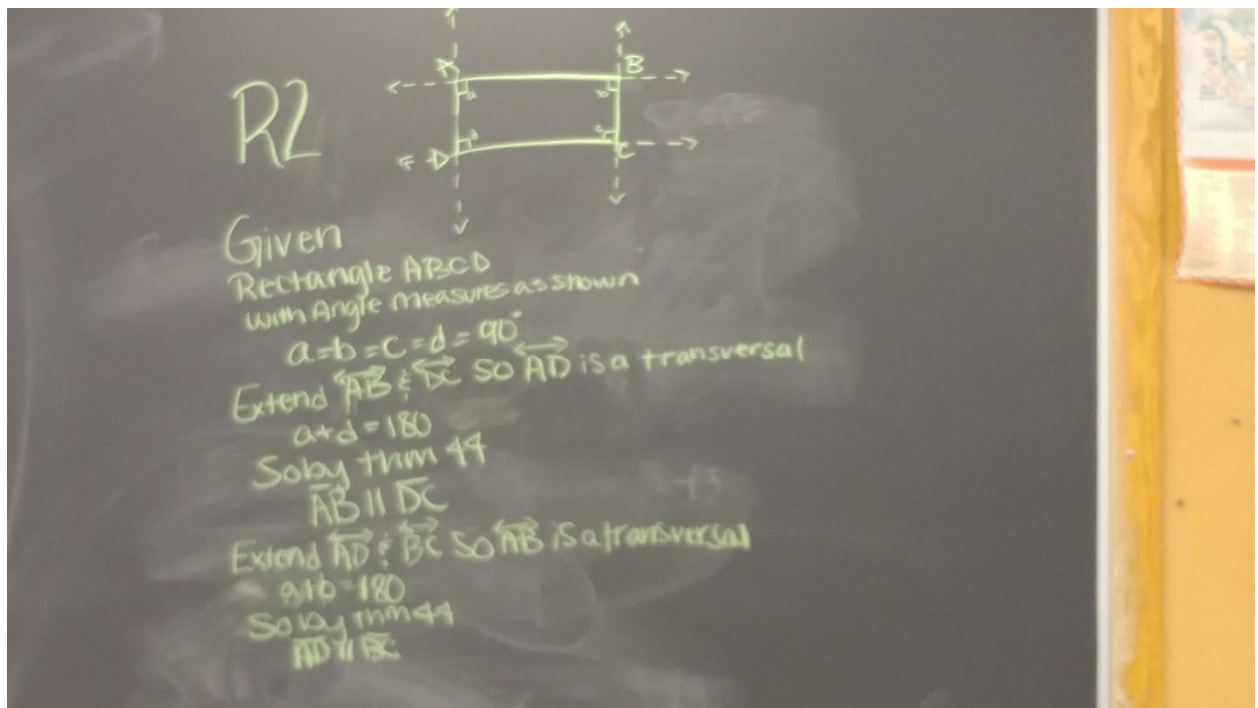 A B
a b
R2
d c
D C
Given
Rectangle ABCD
with Angle measures as shown
a=b=c=d=90°
Extend AB & DC so AD is a transversal
a+d=180
So by thm 44
AB || DC
Extend AD & BC so AB is a transversal
a+b=180
So by thm 44
AD || BC